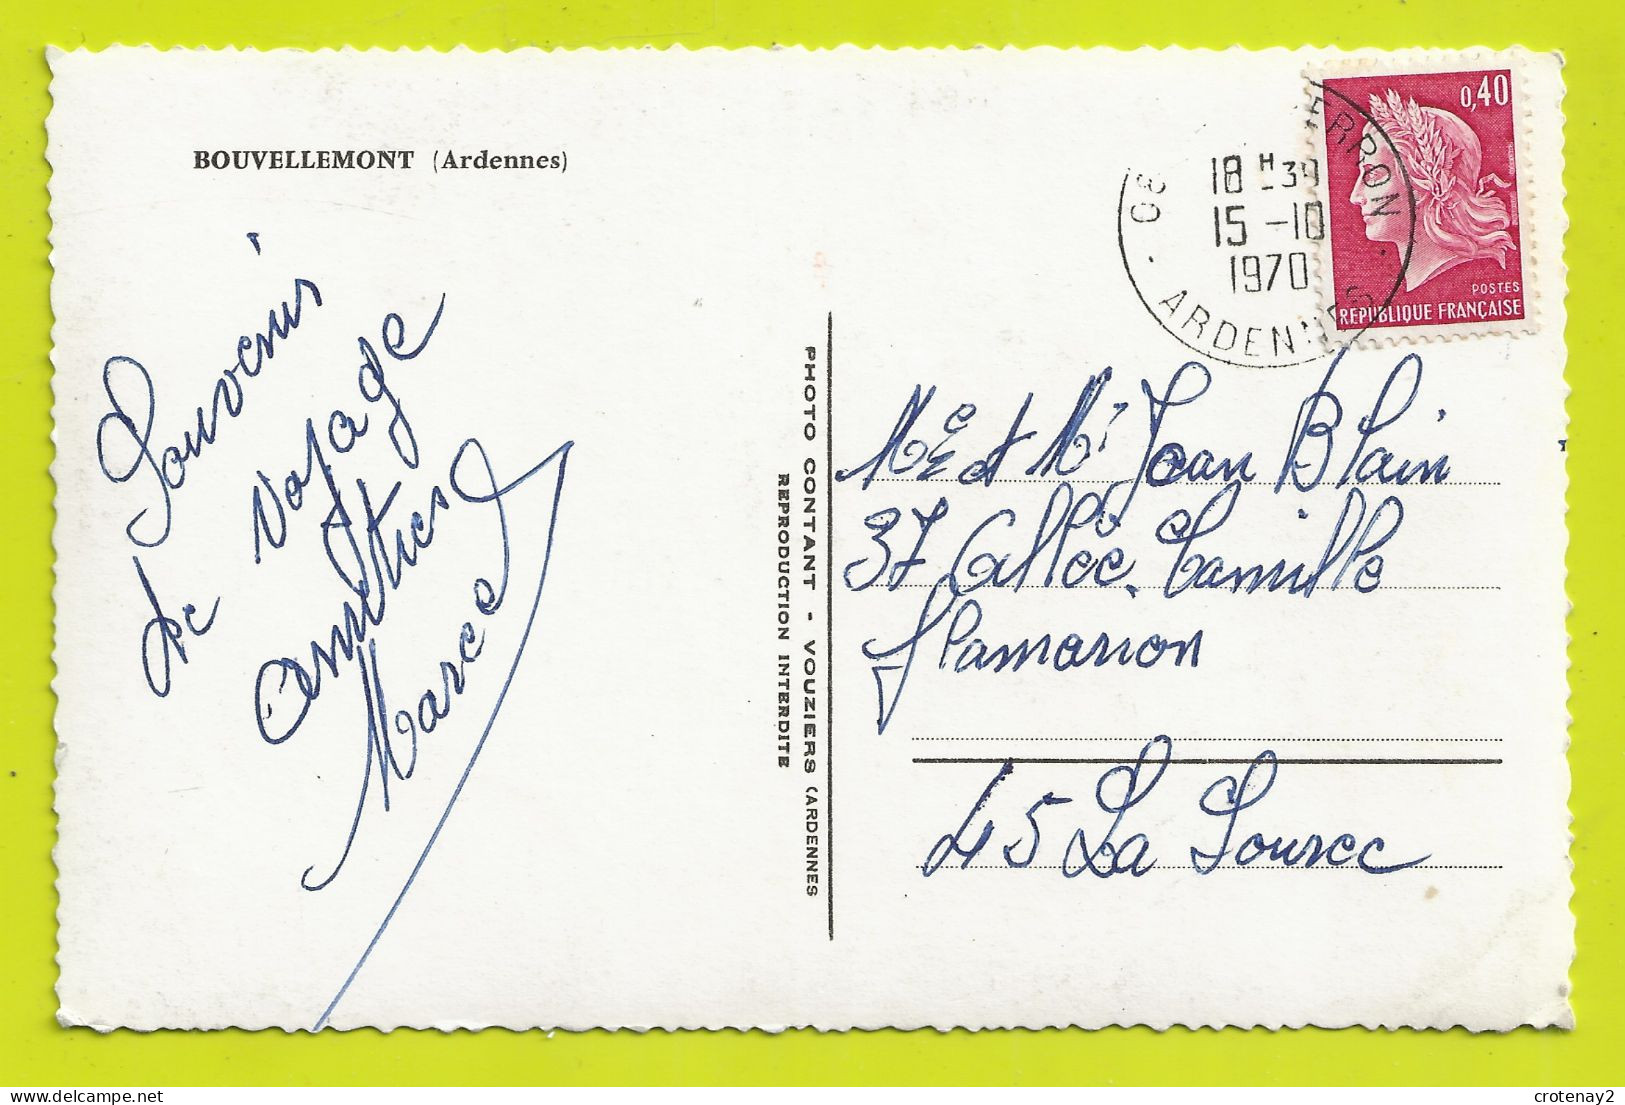 BOUVELLEMONT (Ardennes)
Souvenir
de
voyage
amitiés
Marcel
PHOTO CONTANT - VOUZIERS (ARDENNES
REPRODUCTION INTERDITE
18 H 30
15 -10
1970
08
ARDENNES
0,40
POSTES
REPUBLIQUE FRANÇAISE
Me et Mr Jean Blain
37 Allée Camille
Flamarion
45 La Source
crotenay2